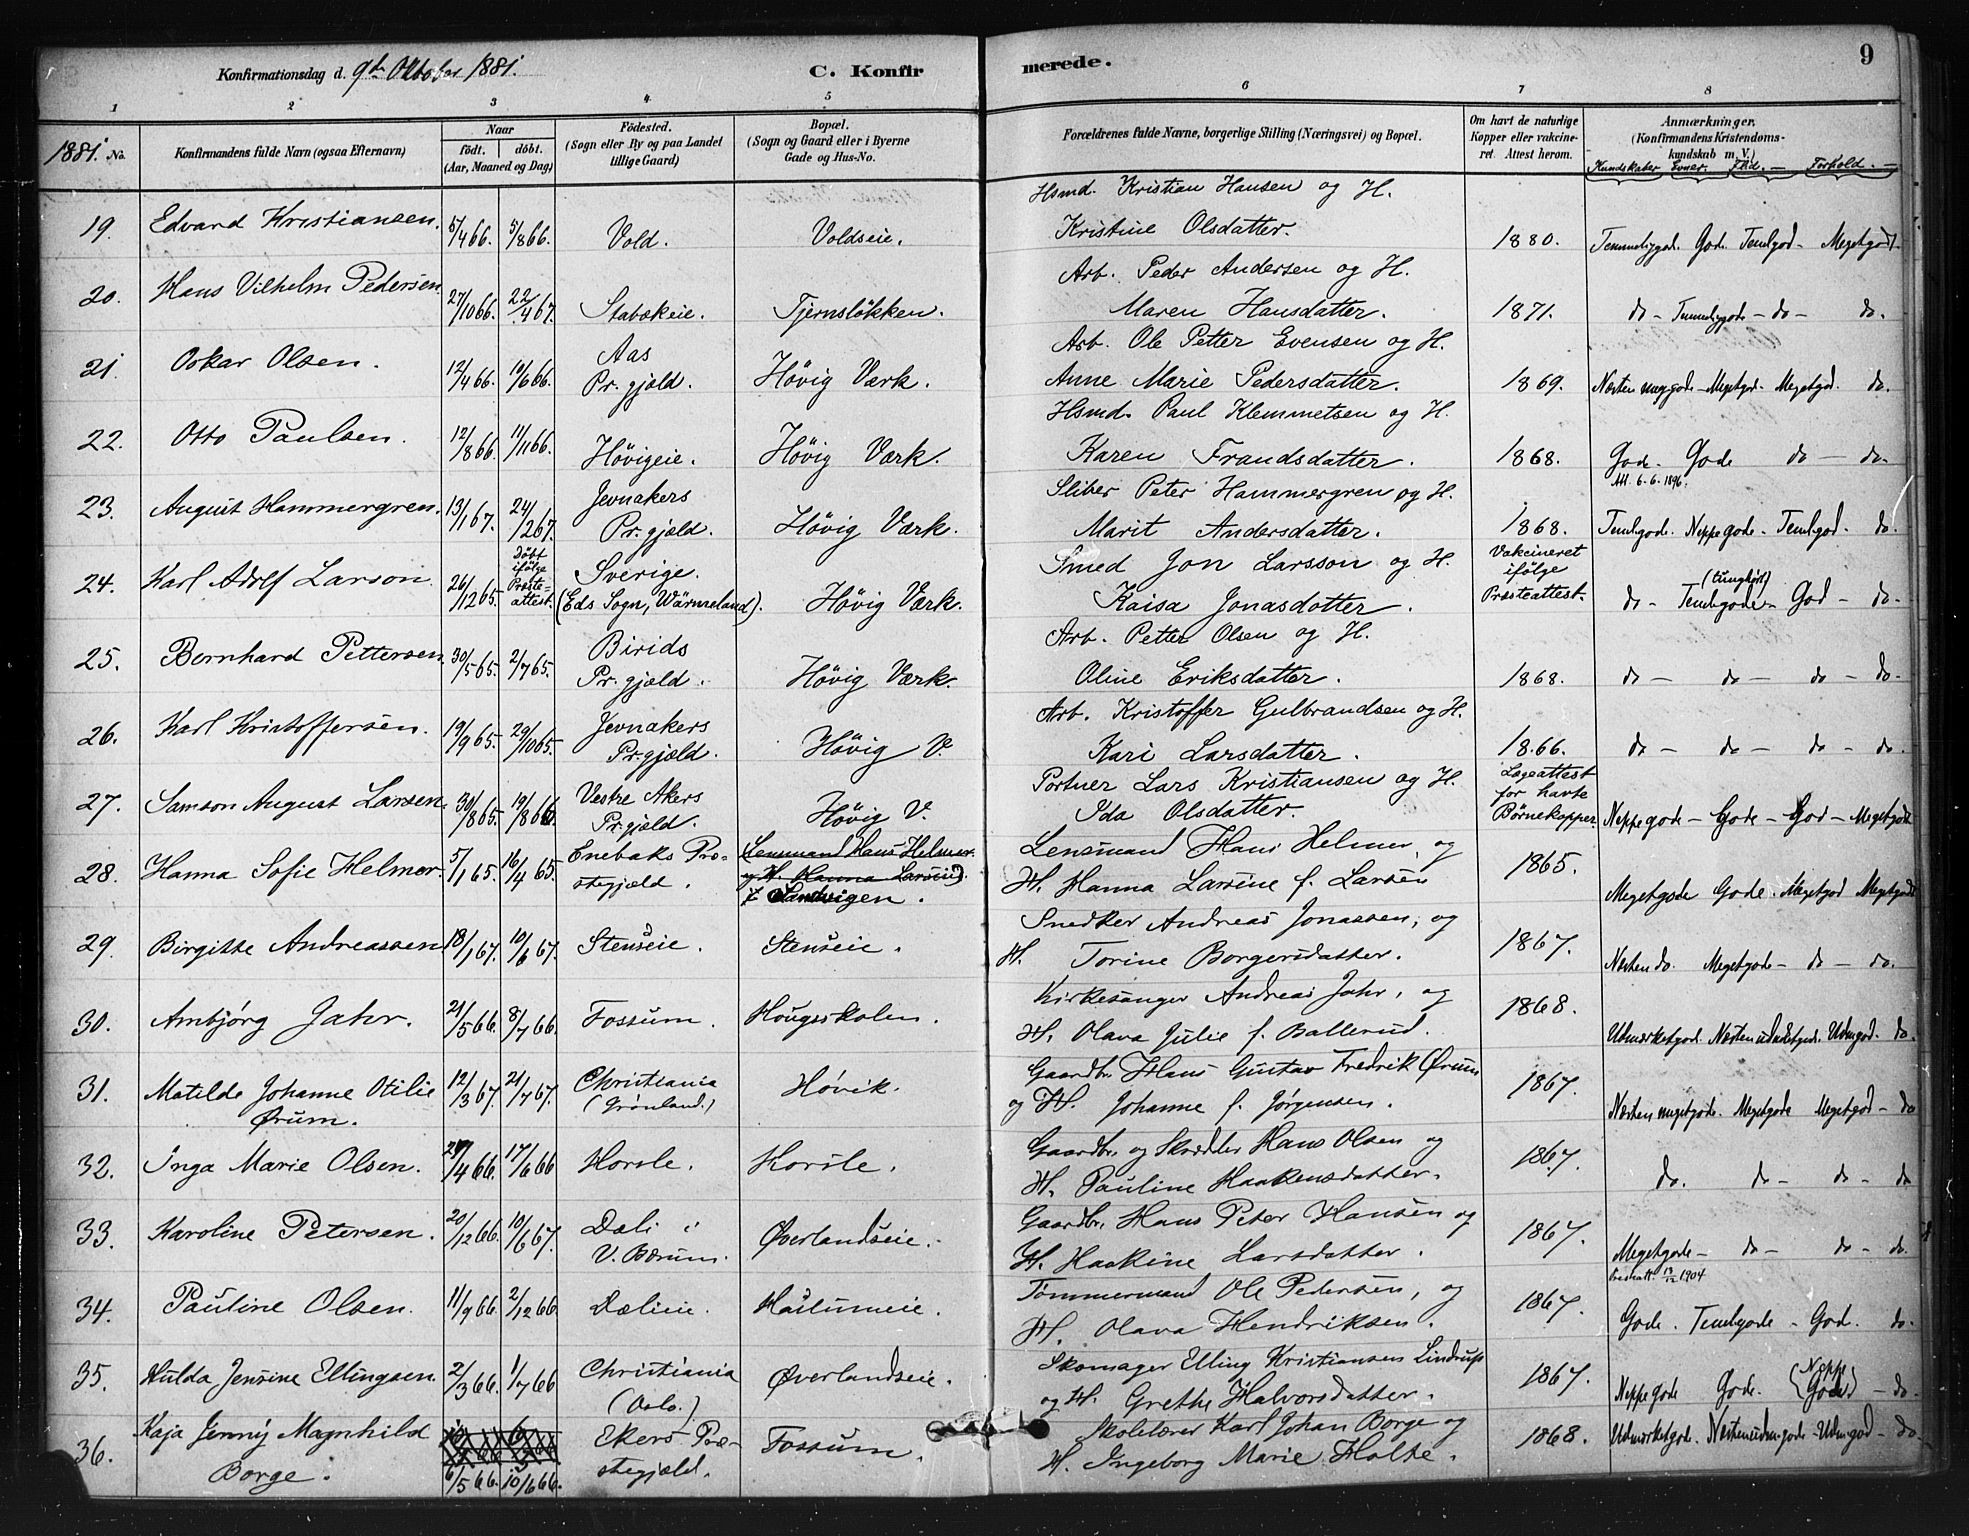 Konfirmationsdag d. 9de Oktober 1881. C. Konfirmerede. 9
1 2 3 4 5 6 7 8
1881. No. Konfirmandens fulde Navn (ogsaa Efternavn) Naar født. døbt. (Aar, Maaned og Dag) Fødested. (Sogn eller By og paa Landet tillige Gaard) Bopæl. (Sogn og Gaard eller i Byerne Gade og Hus-No. Forældrenes fulde Navne, borgerlige Stilling (Næringsvei) og Bopæl. Om havt de naturlige Kopper eller vakcineret. Attest herom. Anmærkninger. (Konfirmandens Kristendomskundskab m. V.) Kundskaber Evner. Flid. Forhold.
19. Edvard Kristiansen. 5/4 66. 5/8 66. Vold. Voldseie. Hsmd. Kristian Hansen og H. Kristine Olsdatter. 1880. Temmeliggod. Gode. Temlgod - Megetgodt.
20. Hans Vilhelm Pedersen 27/10 66. 22/4 67. Stabækeie. Tjernsløkken. Arb. Peder Andersen og H. Maren Hansdatter. 1871. do - Temmeliggode - do - do.
21. Oskar Olsen. 12/4 66. 10/6 66. Aas Pr. gjæld. Høvig Værk. Arb. Ole Petter Evensen og H. Anne Marie Pedersdatter. 1869. Næsten meggode - Megetgod. - Megetgod. do.
22. Otto Paulsen. 12/8 66. 11/11 66. Høvigeie. Høvig Værk. Hsmd. Paul Klemmetsen og H. Karen Frandsdatter. 1868. Gode. Gode do - do.
Att. 6.6.1896.
23. August Hammergren. 13/1 67. 24/2 67. Jevnakers Pr. gjæld. Høvig Værk. Sliber Peter Hammergren og H. Marit Andersdatter. 1868. Temlgode. Neppe gode - Temlgod - do.
24. Karl Adolf Larson. 26/12 65. Døbt ifølge Præsteattest. Sverige. (Eds Sogn, Wärmeland). Høvig Værk. Smed Jon Larsson og H. Kaisa Jonasdotter. Vakcineret ifølge Præsteattest. do - (tunghørt) Temlgode - God - do.
25. Bernhard Pettersen 30/5 65. 2/7 65. Birids Pr. gjæld. Høvig Værk. Arb. Petter Olsen og H. Oline Eriksdatter. 1868. do - do - do - do.
26. Karl Kristoffersen. 19/9 65. 29/10 65. Jevnakers Pr. gjæld. Høvig V. Arb. Kristoffer Gulbrandsen og H. Kari Larsdatter. 1866. do - do - do - do.
27. Samson August Larsen. 30/8 65. 19/8 66. Vestre Akers Pr. gjæld. Høvig V. Portner Lars Kristiansen og H. Ida Olsdatter. Lægeattest for havte Børnekopper. Neppe gode - Gode - God - Megetgodt
28. Hanna Sofie Helmer. 5/1 65. 16/4 65. Enebaks Præstegjæld. Lensmand Hans Helmer og H. Hanna Larsine i Sandvigen. Lensmand Hans Helmer, og H. Hanna Larsine f. Larsen 1865. Megetgode Gode. Megetgod Megetgodt
29. Birgitte Andreassen 18/1 67. 10/6 67. Stenseie. Stenseie. Snedker Andreas Jonassen, og H. Torine Borgersdatter. 1867. Næsten do. Megetgode - do - do.
30. Ambjørg Jahr. 21/5 66. 8/7 66. Fossum. Hougsskolen. Kirkesanger Andreas Jahr, og H. Olava Julie f. Ballerud. 1868. Udmærketgod. Næsten udmærketgode. Udmgod. do.
31. Matilde Johanne Otilie Ørum. 12/3 67. 21/7 67. Christiania (Grønland.) Høvik. Gaardbr. Hans Gustav Fredrik Ørum og H. Johanne f. Jørgensen. 1867. Næsten megetgode. Megetgode Megetgod - do
32. Inga Marie Olsen. 29/4 66. 17/6 66 Horsle. Horsle. Gaardbr. og Skrædder Hans Olsen og H. Pauline Haakensdatter. 1867. do. do - do do
33. Karoline Petersen. 20/12 66. 10/6 67. Dæli i V. Bærum. Øverlandseie. Gaardbr. Hans Peter Hansen og H. Haakine Larsdatter. 1867. Megetgode - do - do - do.
34. Pauline Olsen. 11/9 66. 2/12 66. Dælieie. Haslumeie. Tømmermand Ole Pedersen, og H. Olava Hendriksen. 1867. 13/12 1904 Gode. Temlgode - God. do.
35. Hulda Jensine Ellingsen 2/3 66. 1/7 66 Christiania (Oslo.) Øverlandseie. Skomager Elling Kristiansen Lindrup og H. Grethe Halvorsdatter. 1867. Neppe gode Gode. (Neppe God) - do.
36. Kaja Jenny Magnhild Borge. 6/5 66. 10/6 66. Ekers Præstegjæld. Fossum. Skolelærer Karl Johan Borge og H. Ingeborg Marie Holte. 1868. Udmærketgode. Næstenudmgode - Udmgod - do.